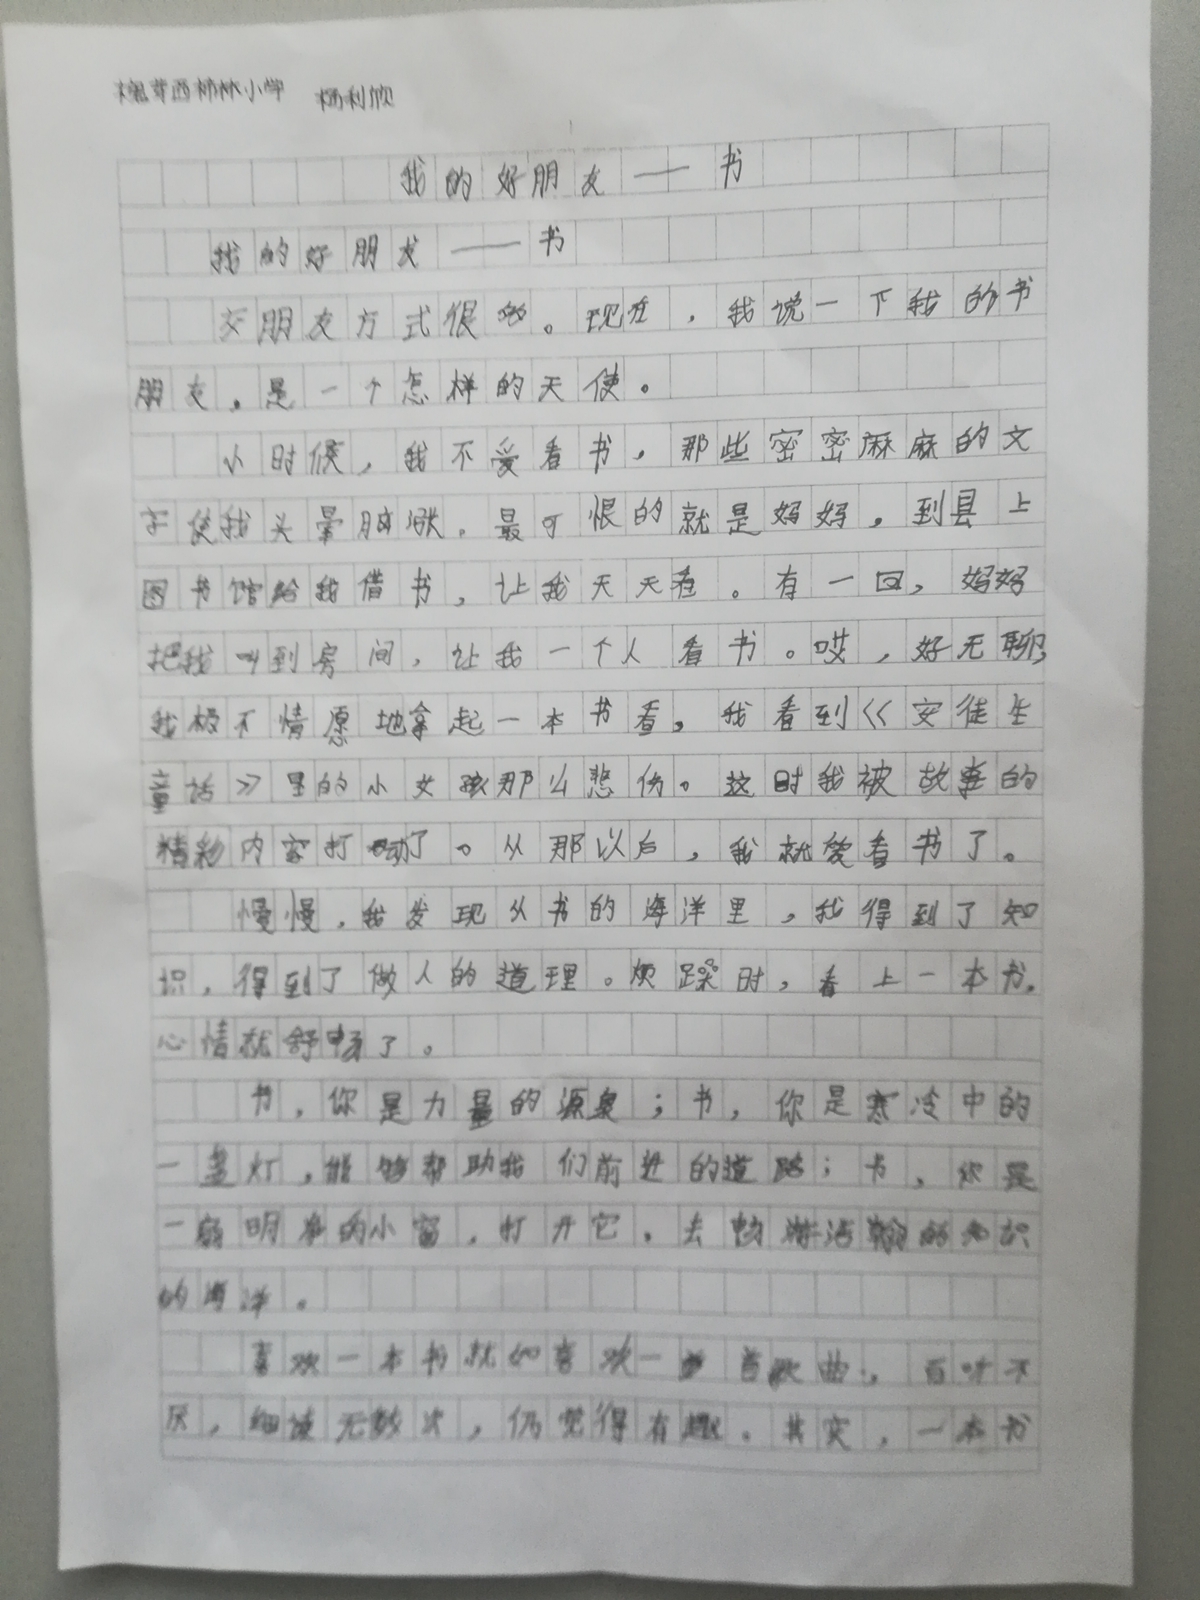 槐芽西柿林小学 杨利欣
我的好朋友——书
我的好朋友——书
交朋友方式很多。现在，我说一下我的书
朋友，是一个怎样的天使。
小时候，我不爱看书，那些密密麻麻的文
字使我头晕脑涨。最可恨的就是妈妈，到县上
图书馆给我借书，让我天天看。有一回，妈妈
把我叫到房间，让我一个人看书。哎，好无聊，
我极不情愿地拿起一本书看，我看到《安徒生
童话》里的小女孩那么悲伤。这时我被故事的
精彩内容打动了。从那以后，我就爱看书了。
慢慢，我发现从书的海洋里，我得到了知
识，得到了做人的道理。烦躁时，看上一本书，
心情就舒畅了。
书，你是力量的源泉；书，你是寒冷中的
一盏灯，能够帮助我们前进的道路；书，你是
一扇明净的小窗，打开它，去畅游浩瀚的知识
的海洋。
喜欢一本书就如喜欢一首歌曲，百听不
厌，细读无数次，仍觉得有趣。其实，一本书